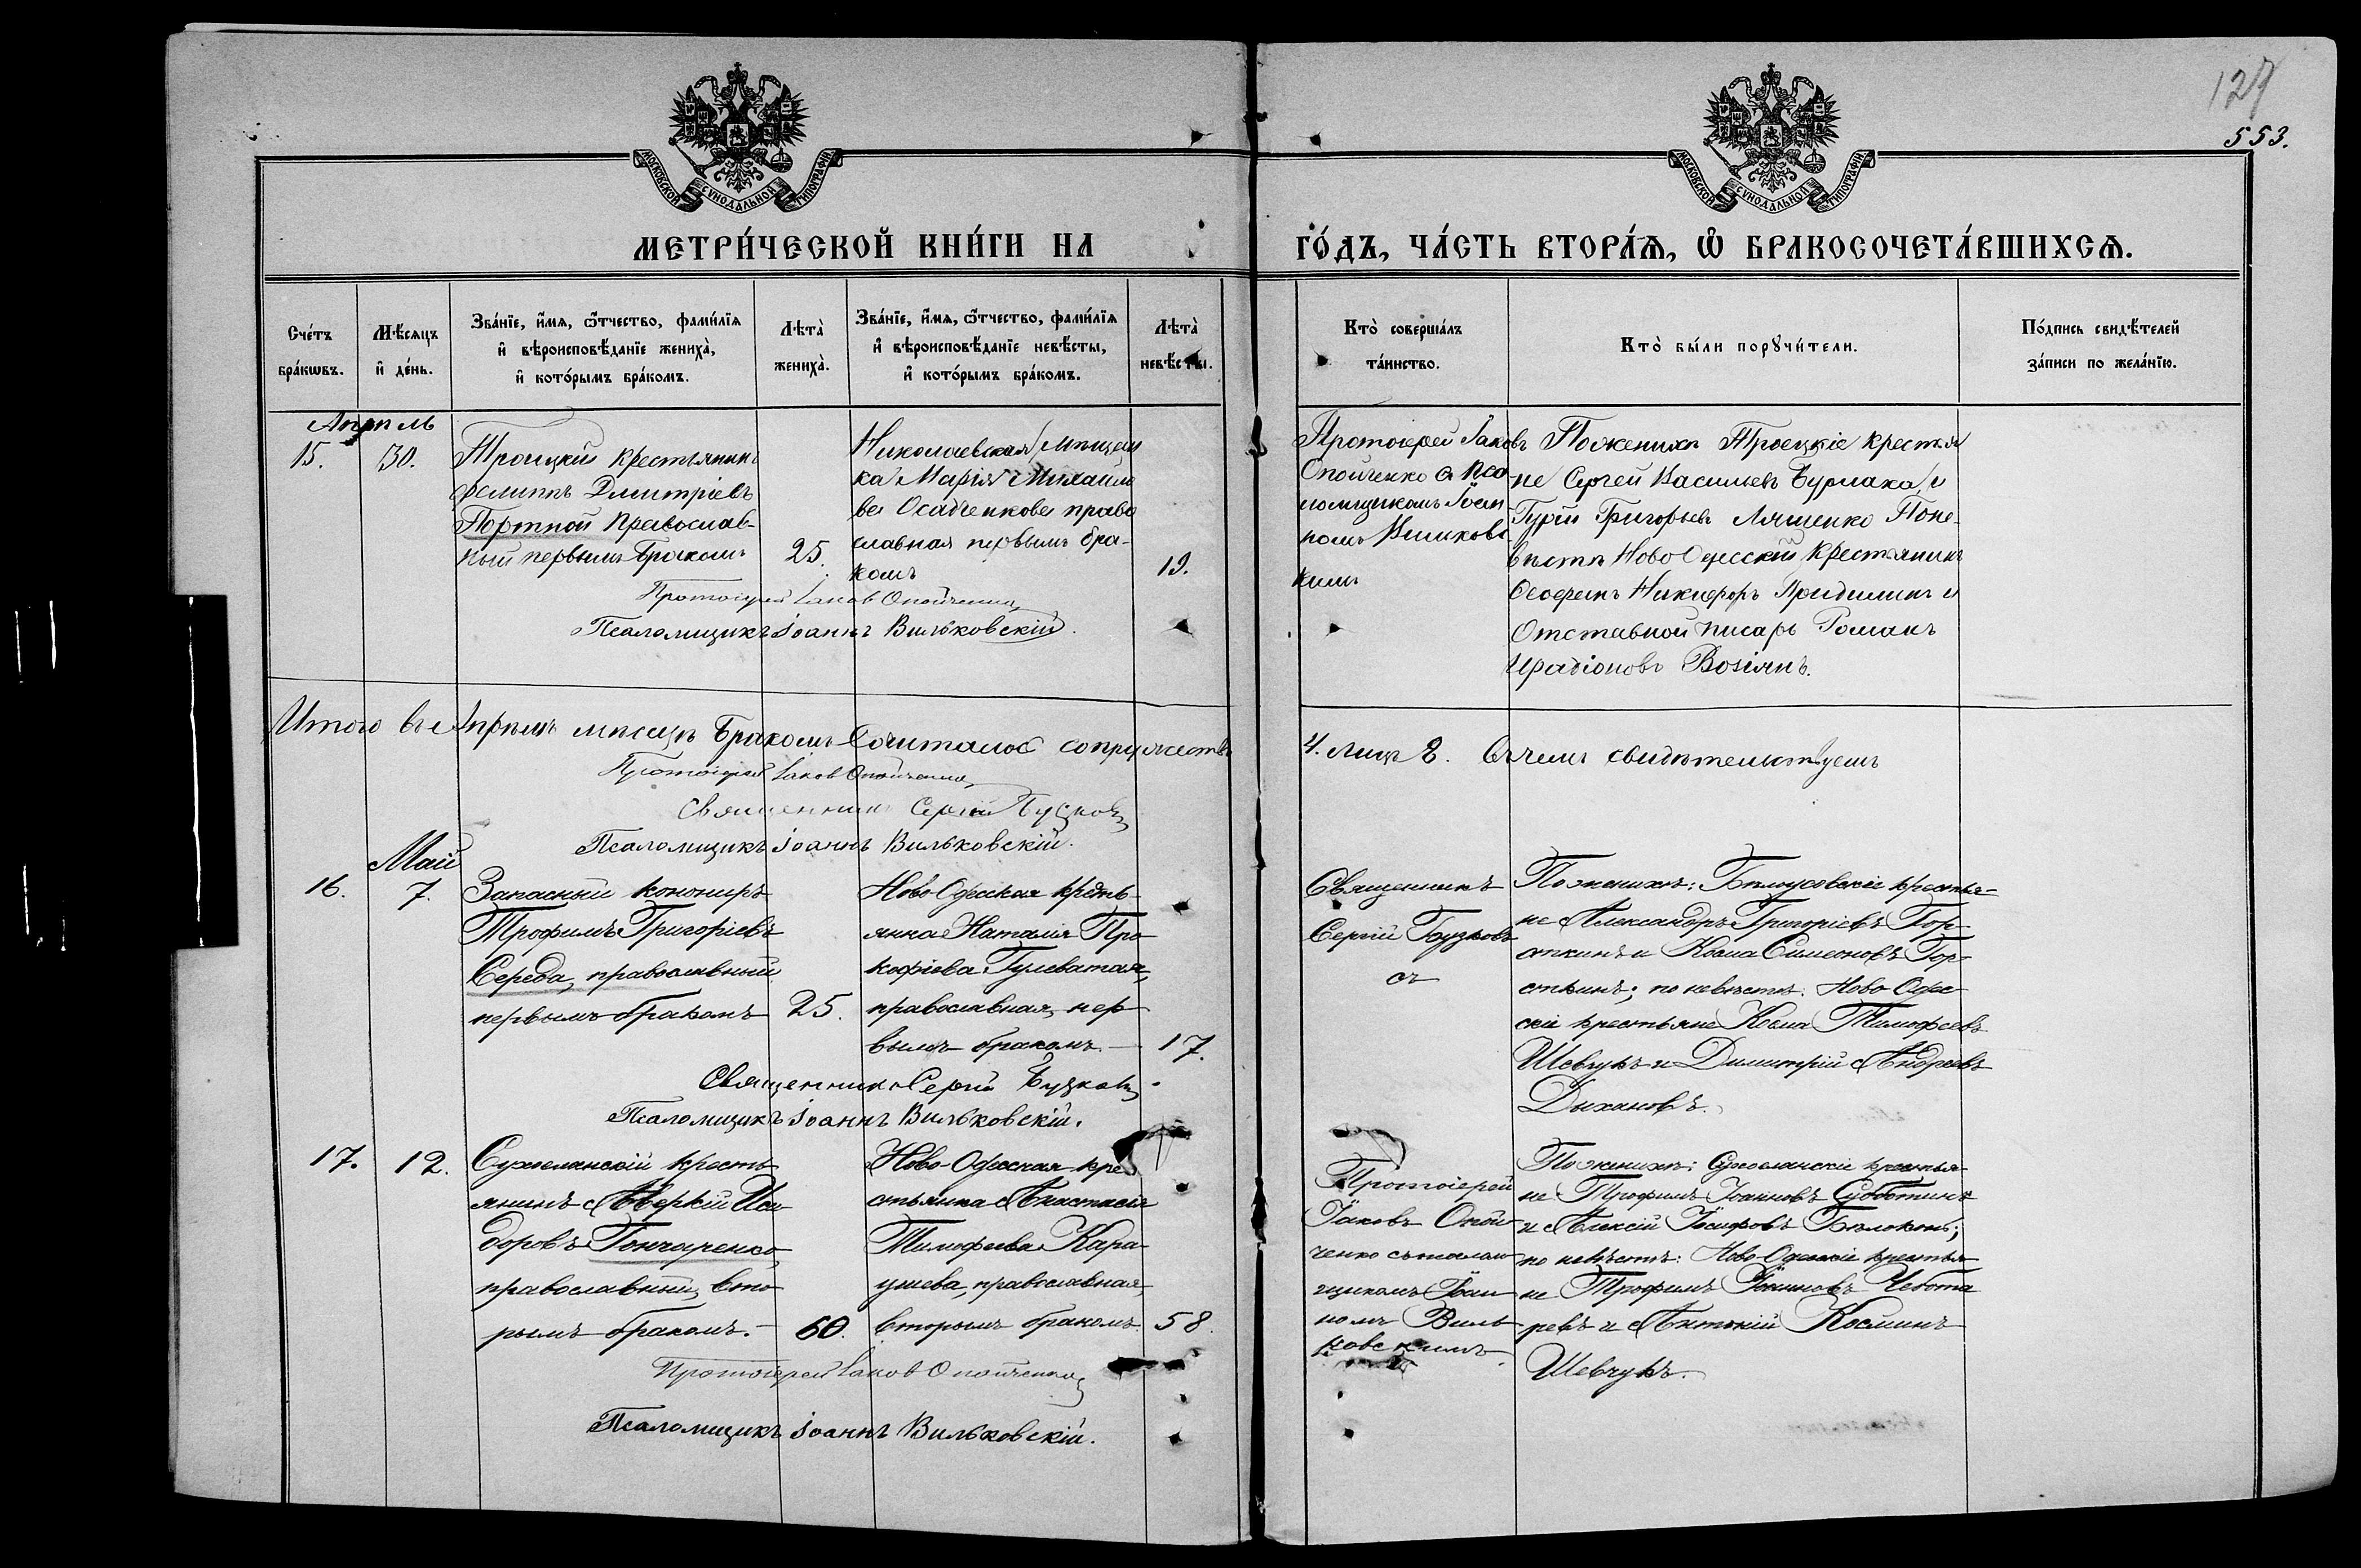 127
553.
МОСКОВСКОЙ СѴНОДАЛЬНОЙ ТИПОГРАФІИ
МОСКОВСКОЙ СѴНОДАЛЬНОЙ ТИПОГРАФІИ
МЕТРИ́ЧЕСКОЙ КНИ́ГИ НА
ГО́ДЪ, ЧА́СТЬ ВТОРА́Я, Ѽ БРАКОСОЧЕТА́ВШИХСЯ.
Сче́тъ
бра́кѡвъ.
Мѣ́сяцъ
и҆ де́нь.
Зва́нїе, и҆́мя, ѻ҆́тчество, фами́лїя
и҆ вѣроисповѣ́данїе жениха̀,
и҆ кото́рымъ бра́комъ.
Лѣта̀
жениха̀.
Зва́нїе, и҆́мя, ѻ҆́тчество, фами́лїя
и҆ вѣроисповѣ́данїе невѣ́сты,
и҆ кото́рымъ бра́комъ.
Лѣта̀
невѣ́сты.
Кто̀ соверша́лъ
та́инство.
Кто̀ бы́ли порꙋчи́тели.
По́дпись свидѣ́телей
за́писи по жела́нїю.
Апрѣль
15.
30.
Троицкій крестьянинъ
Филиппъ Дмитріевъ
Портной Православ-
ный первымъ бракомъ
25.
Николаевская мѣщан
ка Марія Михайло
ва Осадченкова право
славная первымъ бра-
комъ
19.
Протоіерей Іаковъ
Опойченко с Псо
ломщикомъ Іоан
номъ Вильковс
кимъ
Поженихѣ Троецкіе крестья
не Сергей Васильевъ Бурлака и
Гурій Григорьевъ Ляшенко Поне-
вѣстѣ Ново Одесскій крестянинъ
Никифоръ и
Отставной писарь Романъ
Ирадіоновъ Возіянъ.
Протоіерей Іаков Опойченко
Псаломщикъ Іоаннъ Вильковскій.
Итого въ Апрѣлѣ мѣсяцѣ Бракомъ Сочиталос супружествъ
4. лицъ 8. Въ чемъ свидѣтельствуемъ
Протоіерей Іаков Опойченко
Священникъ Сергій Буцковъ
Псаломщикъ Іоаннъ Вильковскій.
Май
16.
7.
Запасный конониръ
Трофимъ Григоріевъ
Середа, православный
первымъ бракомъ
25.
Ново-Одесская кресть-
янка Наталія Про
кофіева Гулеватая,
православная, пер
вымъ бракомъ.
17.
Священникъ
Сергій Буцковъ
съ
По женихѣ: Бѣлоусовскіе крестья-
не Александръ Григоріевъ Гор-
откинъ и Косма Симеоновъ Гор-
откинъ; по невѣстѣ: Ново-Одес
скіе крестьяне Косма Тимофеевъ
Шевчукъ и Димитрій Андреевъ
Дыхановъ.
Священникъ Сергій Буцковъ.
Псаломщикъ Іоаннъ Вильковскій.
17.
12.
Сухоеланскій кресть
янинъ Аверкій Иси
доровъ Гончаренко,
православный, вто
рымъ бракомъ.
60.
Ново-Одесская кре
стьянка Анастасія
Тимофеева Кара-
ушева, православная,
вторымъ бракомъ.
58.
Протоіерей
Іаковъ Опой
ченко съ псалом
щикомъ Іоан
номъ Виль
ковскимъ.
По женихѣ: Сухоеланскіе крестья-
не Трофимъ Іоанновъ Субботинъ
и Алексій Іосифовъ Бѣлоконь;
по невѣстѣ: Ново-Одесскіе крестья-
не Трофимъ Іоанновъ Чебота
ревъ и Антоній Косминъ
Шевчукъ.
Протоіерей Іаков Опойченко
Псаломщикъ Іоаннъ Вильковскій.